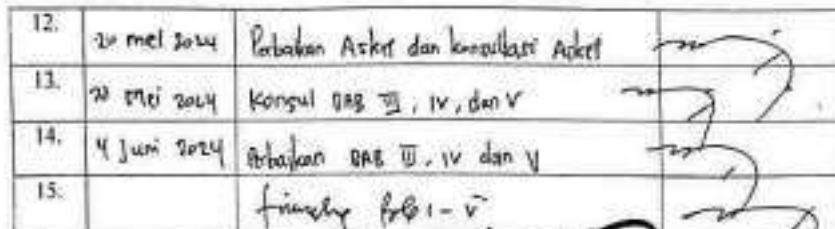 12. 20 mei 2024 Perbaikan Askep dan konsultasi Askep
13. 20 Mei 2024 Konsul BAB III, IV, dan V
14. 4 Juni 2024 Perbaikan BAB III, IV dan V
15. BAB I - V